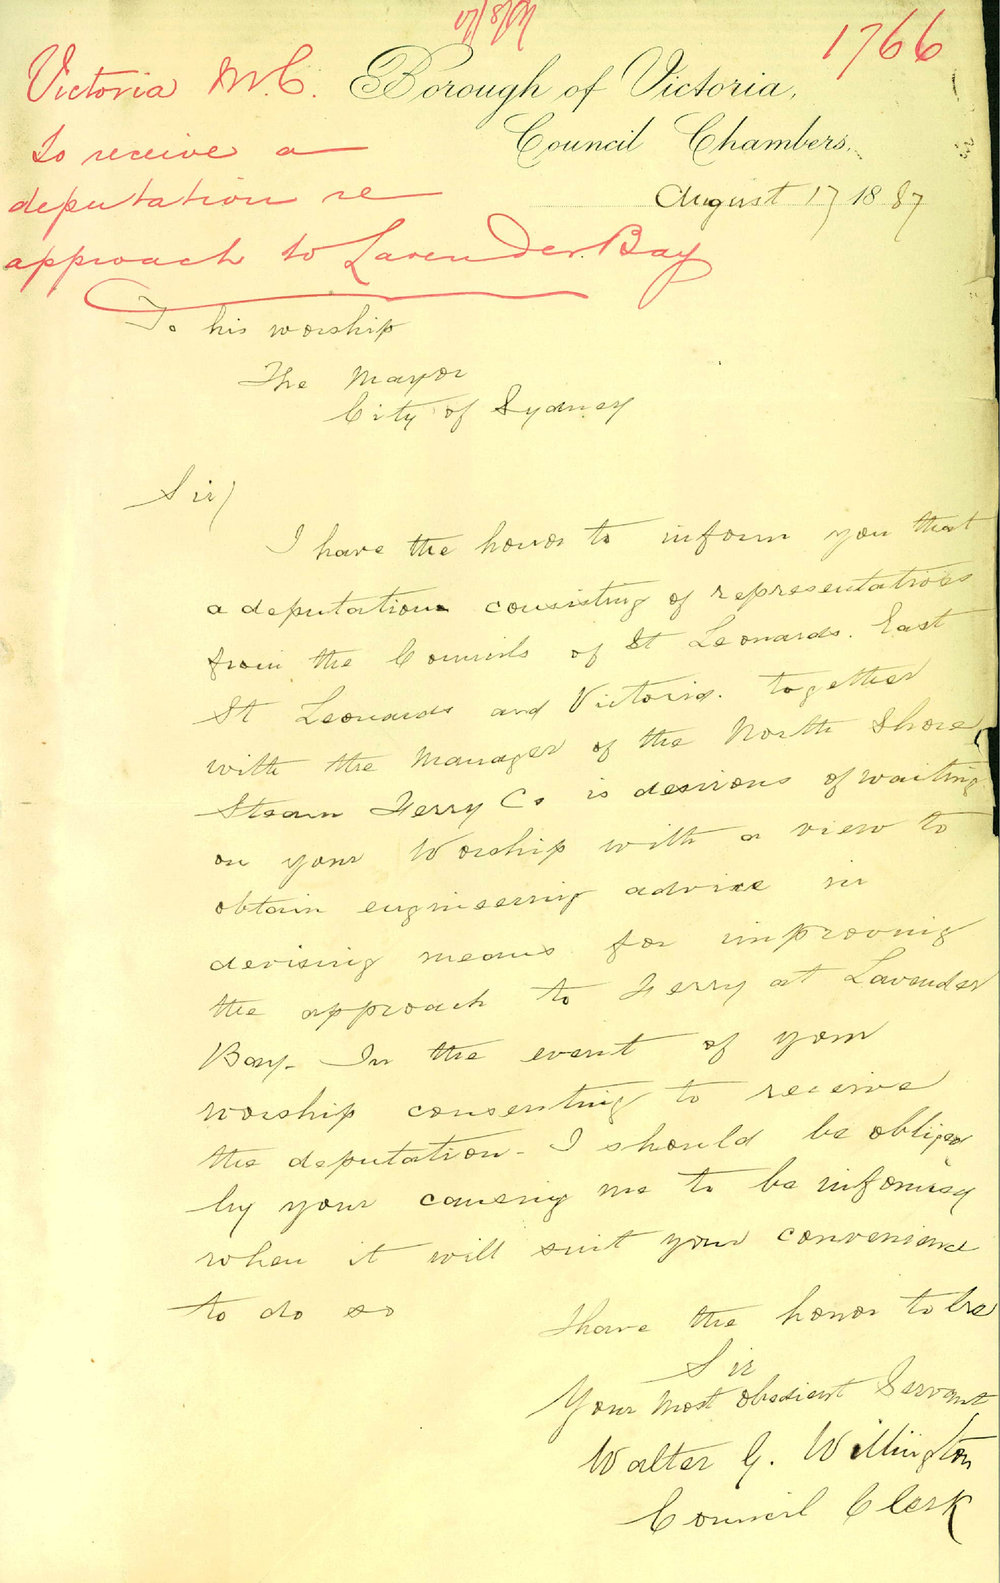 17/8/87
1766
Victoria M.C.
To receive a
deputation re
approach to Lavender Bay
Borough of Victoria,
Council Chambers,
August 17 1887
To his worship
The Mayor
City of Sydney
Sir/
I have the honor to inform you that
a deputation consisting of representatives
from the Councils of St Leonards. East
St Leonards and Victoria. together
with the Manager of the North Shore
Steam Ferry Co is desirous of waiting
on your Worship with a view to
obtain engineering advice in
devising means for improving
the approach to Ferry at Lavender
Bay - In the event of your
worship consenting to receive
the deputation - I should be obliged
by your causing me to be informed
when it will suit your convenience
to do so
I have the honor to be
Sir
Your most obedient Servant
Walter G. Willington
Council Clerk